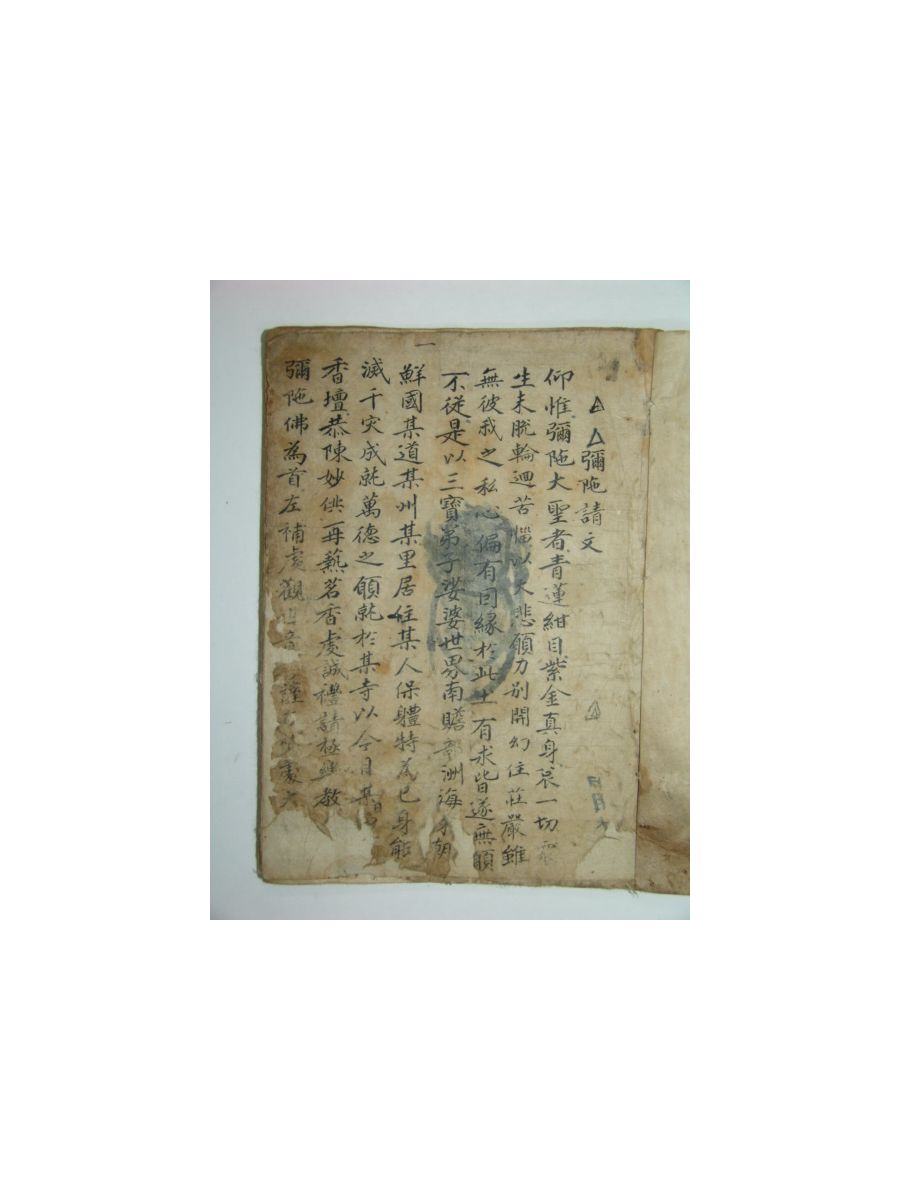 彌陁請文
仰惟彌陁大聖者青蓮紺目紫金真身哀一切衆
生未脫輪迴苦惱以大悲願力别開幻住莊嚴雖
無彼我之私心偏有因緣於此土有求皆遂無願
不從是以三寶弟子娑婆世界南贍部洲海東朝
鮮國某道某州某里居住某人保體特爲己身能
滅千灾成就萬德之願就於某寺以今月某日
香壇恭陳妙供再爇茗香虔誠禮請極樂教
彌陁佛為首左補處觀世音 謹 處大